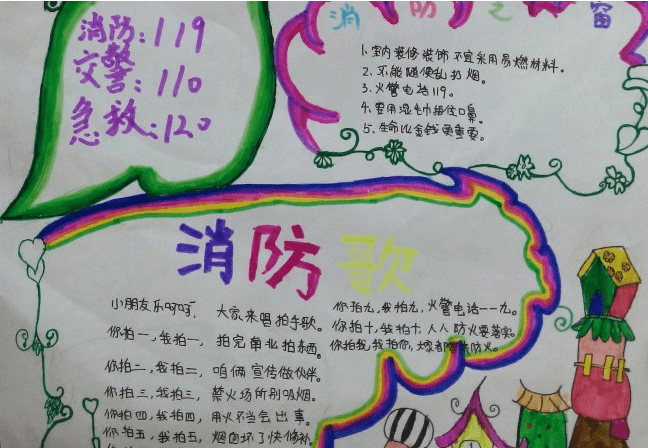 消防:119
交警:110
急救:120
消防之窗
1.室内装修装饰不宜采用易燃材料。
2.不能随便乱扔烟。
3.火警电话119。
4.要用湿毛巾捂住口鼻。
5.生命比金钱更重要。
消防歌
小朋友乐呵呵, 大家来唱拍手歌。
你拍一,我拍一, 拍完单业拍东西。
你拍二,我拍二, 咱俩宣传做伙伴。
你拍三,我拍三, 禁火场所别吸烟。
你拍四,我拍四, 用火不当会出事。
你拍五,我拍五, 烟囱坏了快修补
你拍九,我拍九,火警电话一一九。
你拍十,我拍十,人人防火要落实。
你拍我,我拍你,防火。